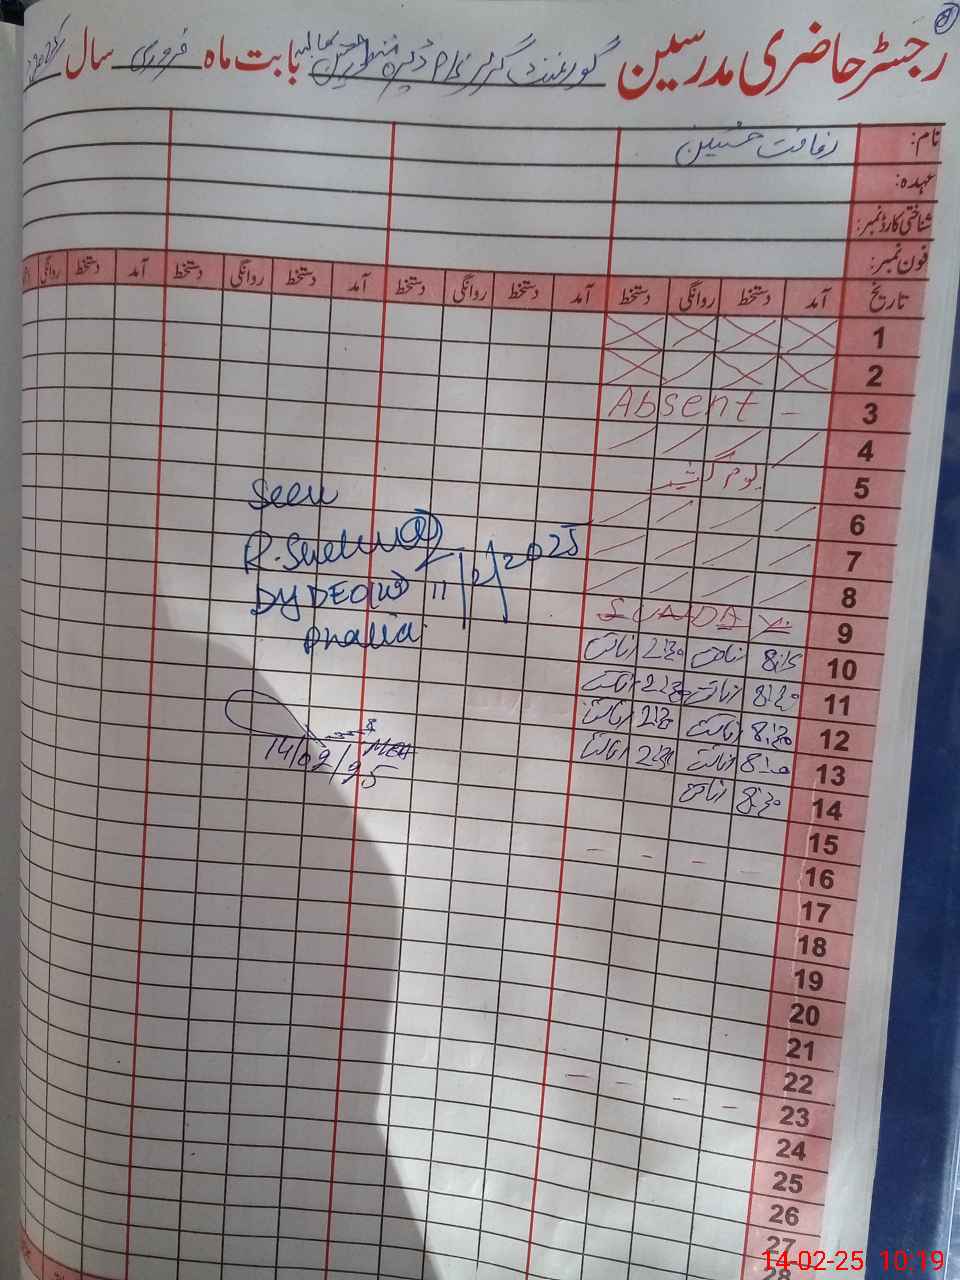 رجسٹر حاضری مدرسین گورنمنٹ گرلز بابت ماہ فروری سال
نام: رفاقت حسین
عہدہ:
شناختی کارڈ نمبر:
فون نمبر:
تاریخ آمد دستخط روانگی دستخط آمد دستخط روانگی دستخط آمد دستخط روانگی دستخط آمد دستخط روانگی
1
2
3 Absent -
4
5 یوم کشمیر
6
7
8
9 SUNDAY
10 8:15 رفاقت 2:30 رفاقت
11 8:30 رفاقت 2:30 رفاقت
12 8:30 رفاقت 2:30 رفاقت
13 8:30 رفاقت 2:30 رفاقت
14 8:30 رفاقت
15
16
17
18
19
20
21
22
23
24
25
26
27
28
Seen
11/2/2025
Dy DEO
Phalia
14/02/25
14-02-25 10:19